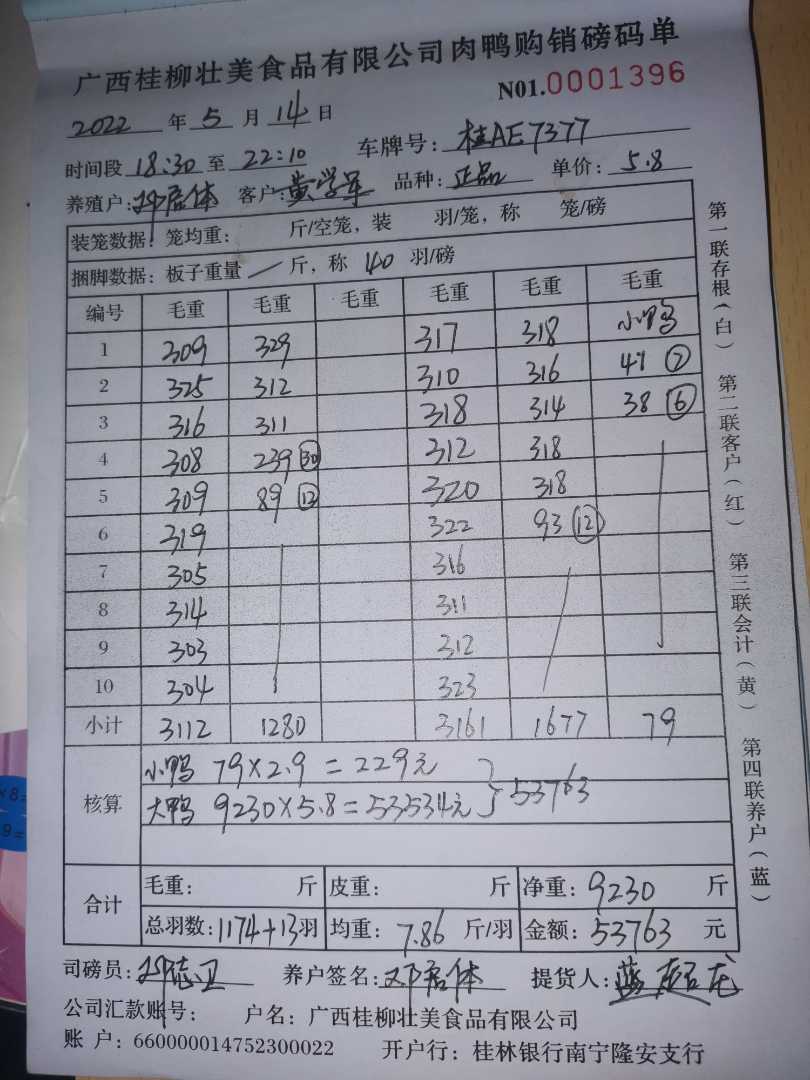 广西桂柳壮美食品有限公司肉鸭购销磅码单
N01.0001396
2022 年 5 月 14 日
时间段 18:30 至 22:10 车牌号: 桂AE7377
养殖户: 邓居体 客户: 黄学军 品种: 正品 单价: 5.8
装笼数据: 笼均重: 斤/空笼, 装 羽/笼, 称 笼/磅
捆脚数据: 板子重量 / 斤, 称 40 羽/磅
编号 毛重 毛重 毛重 毛重 毛重 毛重
1 309 329 317 318 小鸭
2 325 312 310 316 41 ⑦
3 316 311 318 314 38 ⑥
4 308 239 ㉚ 312 318
5 309 89 ⑫ 320 318
6 319 322 93 ⑫
7 305 316
8 314 311
9 303 312
10 304 323
小计 3112 1280 3161 1677 79
核算 小鸭 79×2.9=229元
大鸭 9230×5.8=53534元 } 53763
合计 毛重: 斤 皮重: 斤 净重: 9230 斤
总羽数: 1174+13羽 均重: 7.86 斤/羽 金额: 53763 元
司磅员: 邓德卫 养户签名: 邓居体 提货人: 蓝超龙
公司汇款账号: 户名: 广西桂柳壮美食品有限公司
账 户: 660000014752300022 开户行: 桂林银行南宁隆安支行
第一联存根(白) 第二联客户(红) 第三联会计(黄) 第四联养户(蓝)
×8=
9=